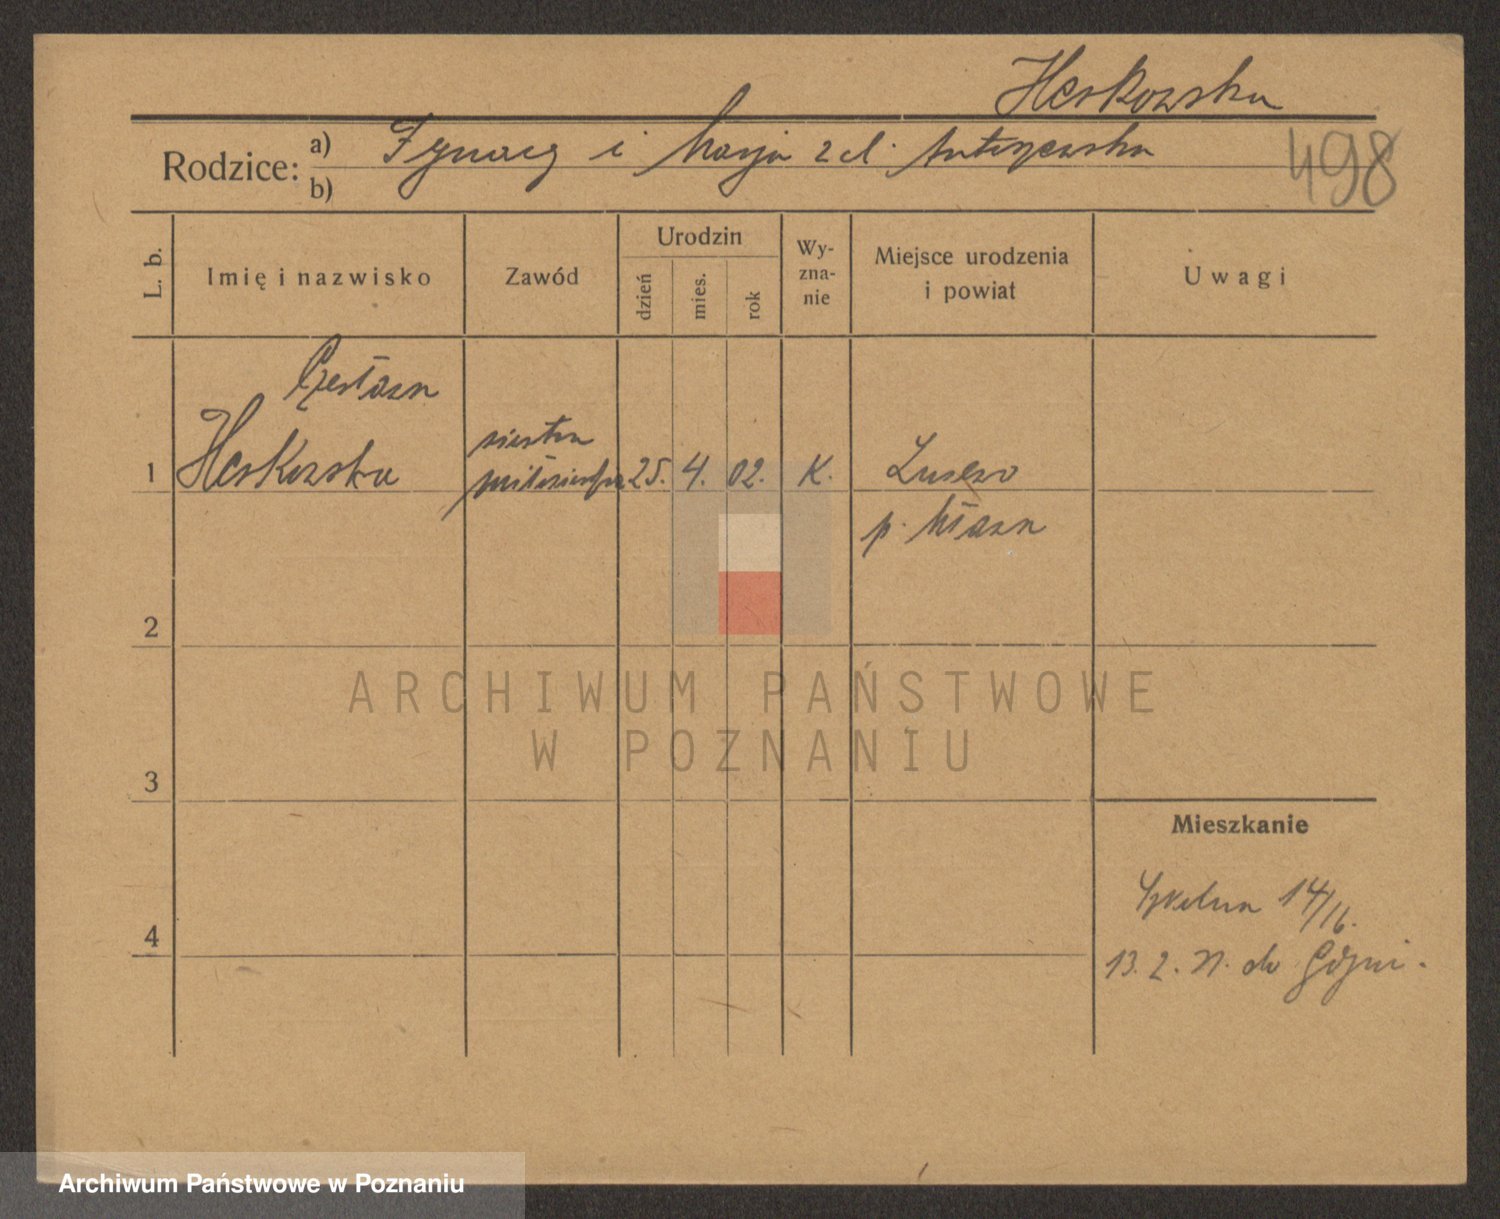 Heskowska
Rodzice: a) Ignacy i Marja z d.
b)
498
L. b.
Imię i nazwisko
Zawód
Urodzin
dzień
mies.
rok
Wy-
zna-
nie
Miejsce urodzenia
i powiat
Uwagi
Czesława
Heskowska
siostra
miłosierdzia
1
25. 4. 02. K.
p. Mława
2
3
4
Mieszkanie
Szkolna 14/16.
13. 2. N. do Gdyni.
ARCHIWUM PAŃSTWOWE
W POZNANIU
Archiwum Państwowe w Poznaniu